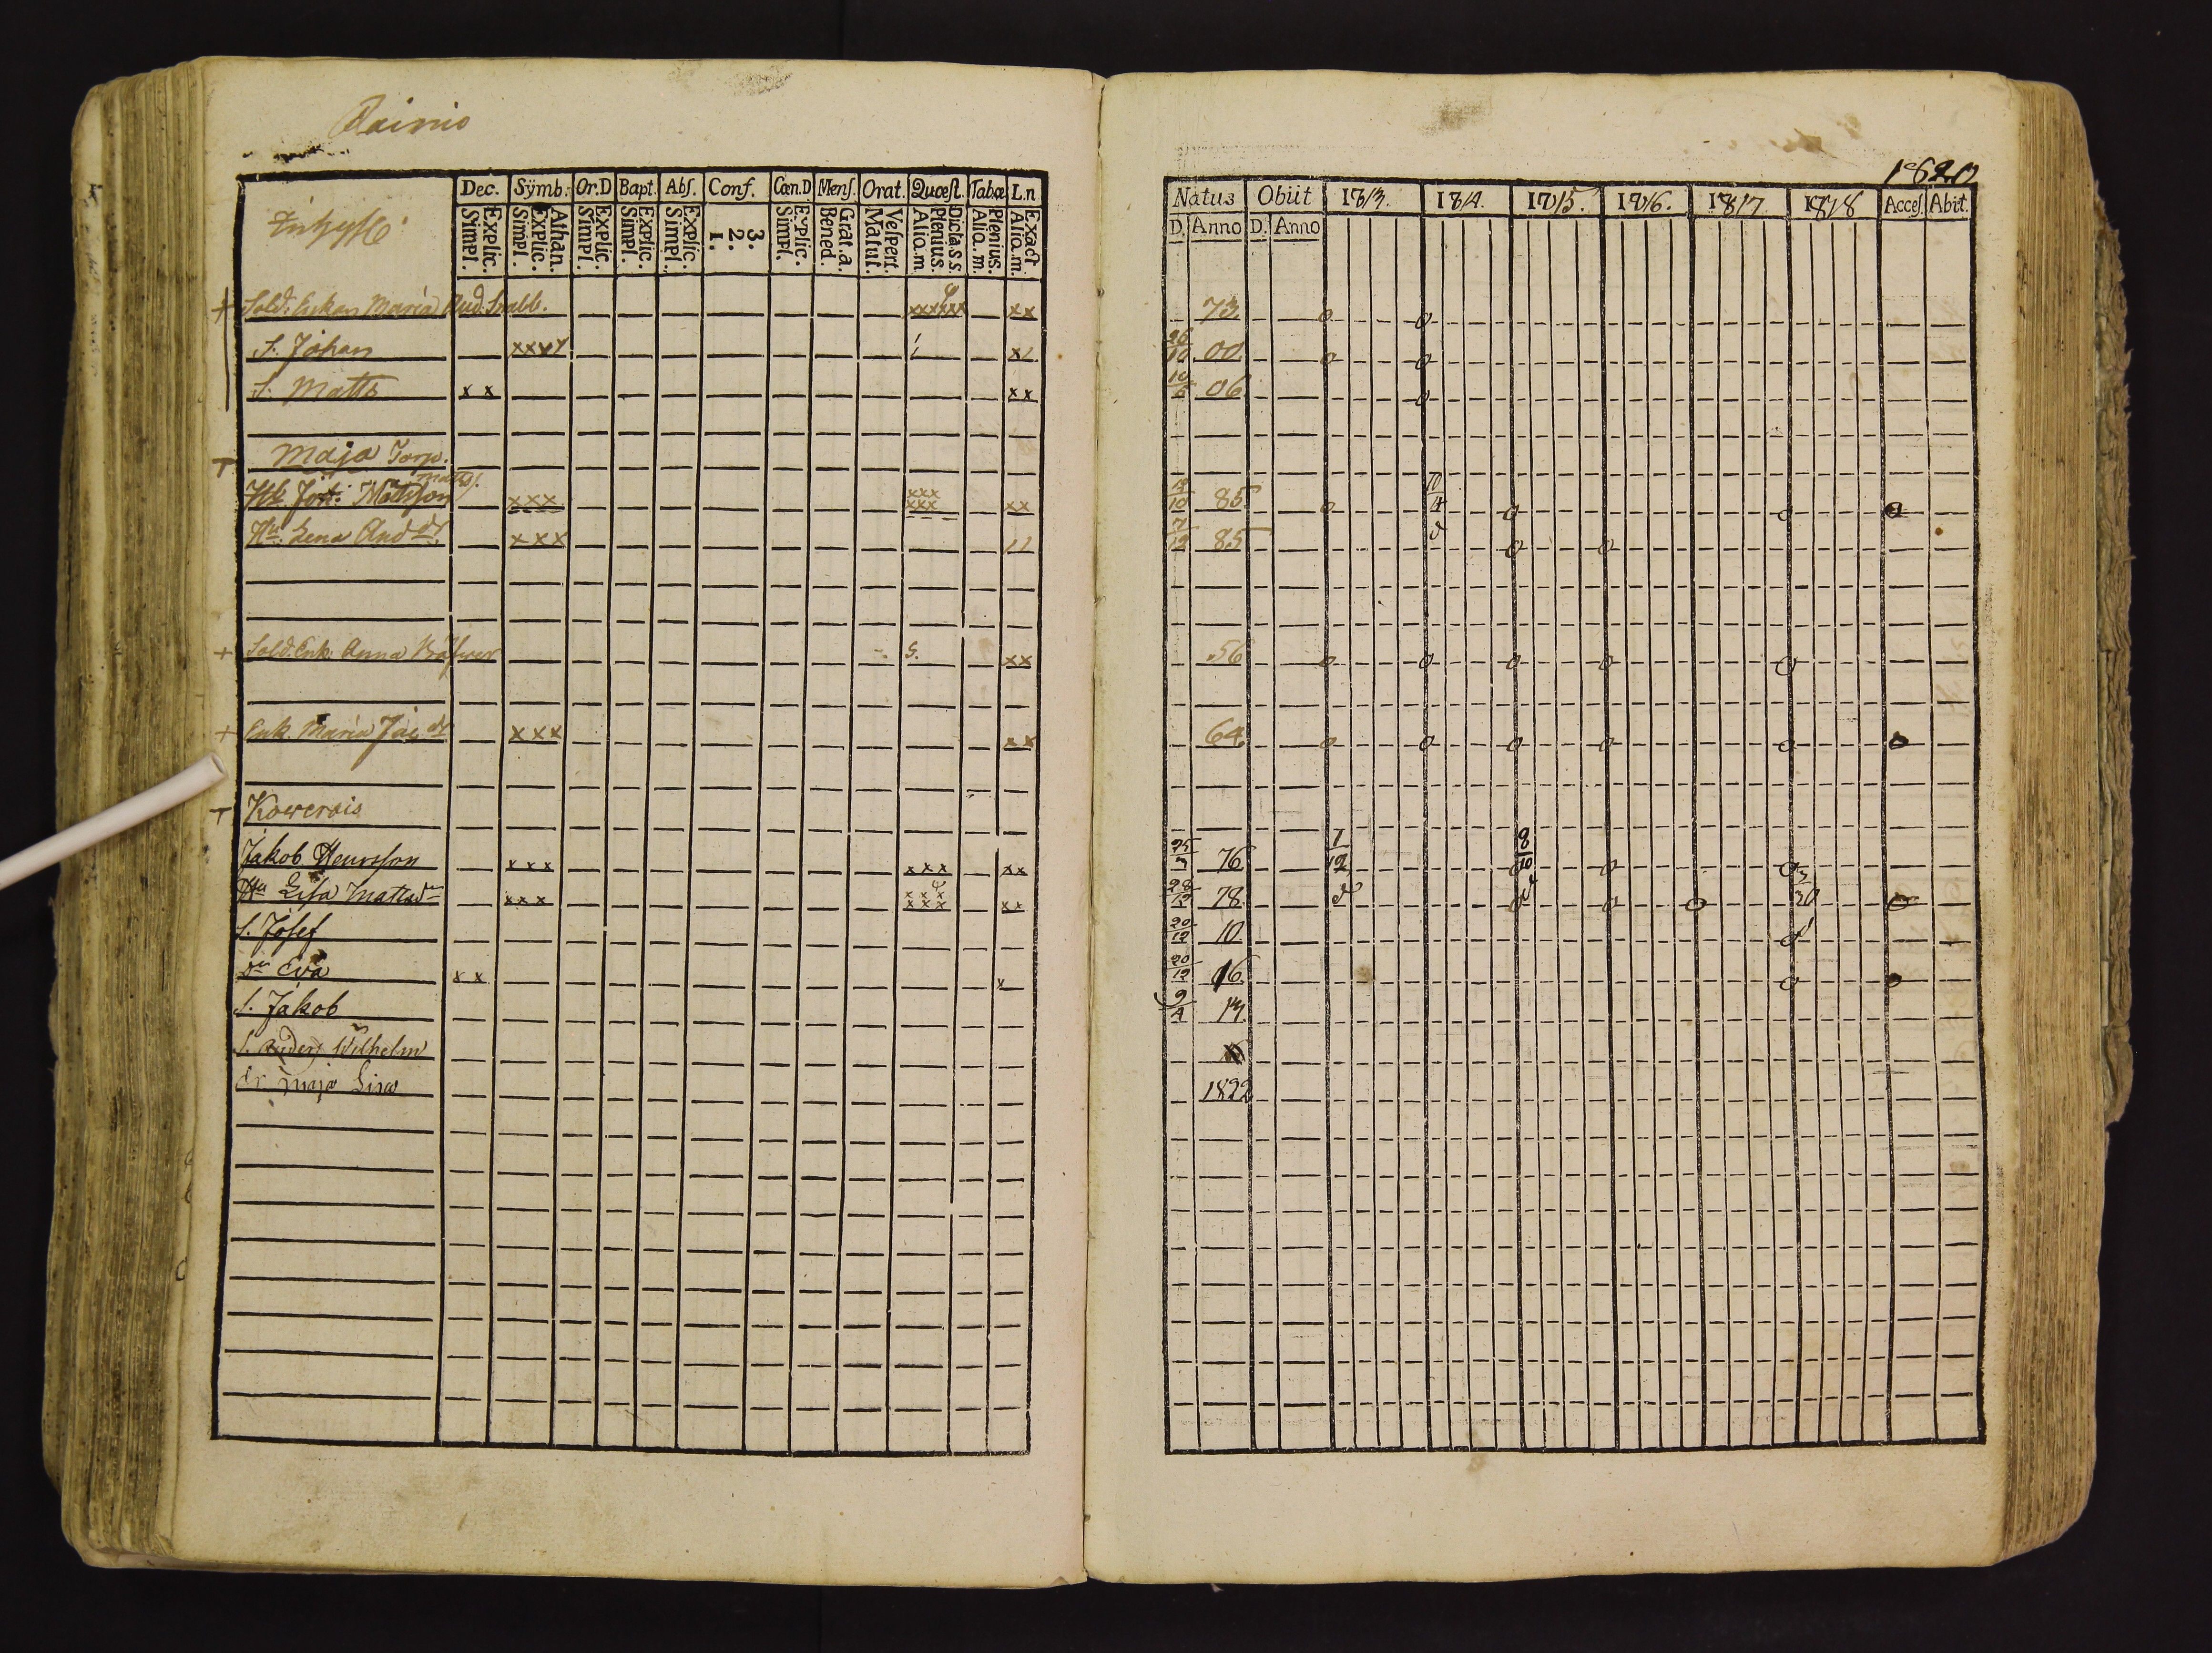 Rainio
Dec. Symb. Or.D Bapt. Abſ. Conf. Cœn.D Menſ. Orat. Quœſt. Tabœ L.n
Explic. Simpl. Athan. Explic. Simpl. Explic. Simpl. Explic. Simpl. Explic. Simpl. 3. 2. 1. Explic. Simpl. Grat. a. Bened. Veſpert. Matut. Dicta s s. Plenius. Alio. m. Plenius. Alio. m. Exact Alio. m.
Sold. Enkan Maria And. Snabb. xxxxxx xx
S. Johan xxxx x
S. Matts x x xx
Maja Torp.
Matts
Johi Mattsson xxx xxx xxx xx
Hu Lena And dr xxx
Sold. Enk. Anna S. xx
Enk. Maria Jac dr xxx xx
Kowerois
Jakob Henrsson xxx xxx xx
Hu Lisa Mattsdr xxx xxx xxx xx
S. Josef
Dr Eva x x x
S. Jakob
S. Anders Wilhelm
dr. Maja Lisa
1820
Natus Obiit 1813. 1814. 1815. 1816. 1817. 1818 Acceſ. Abit.
D. Anno D. Anno
73 o o
26/10 00 o o
06 o
10 85 o o o o
7/12 85 o o
56 o o o o o
64 o o o o o o
25/3 76 1/12 8/10 o o
28/12 78 o o o o
20/12 10 o
20/12 16 o o
9/4 14
1822